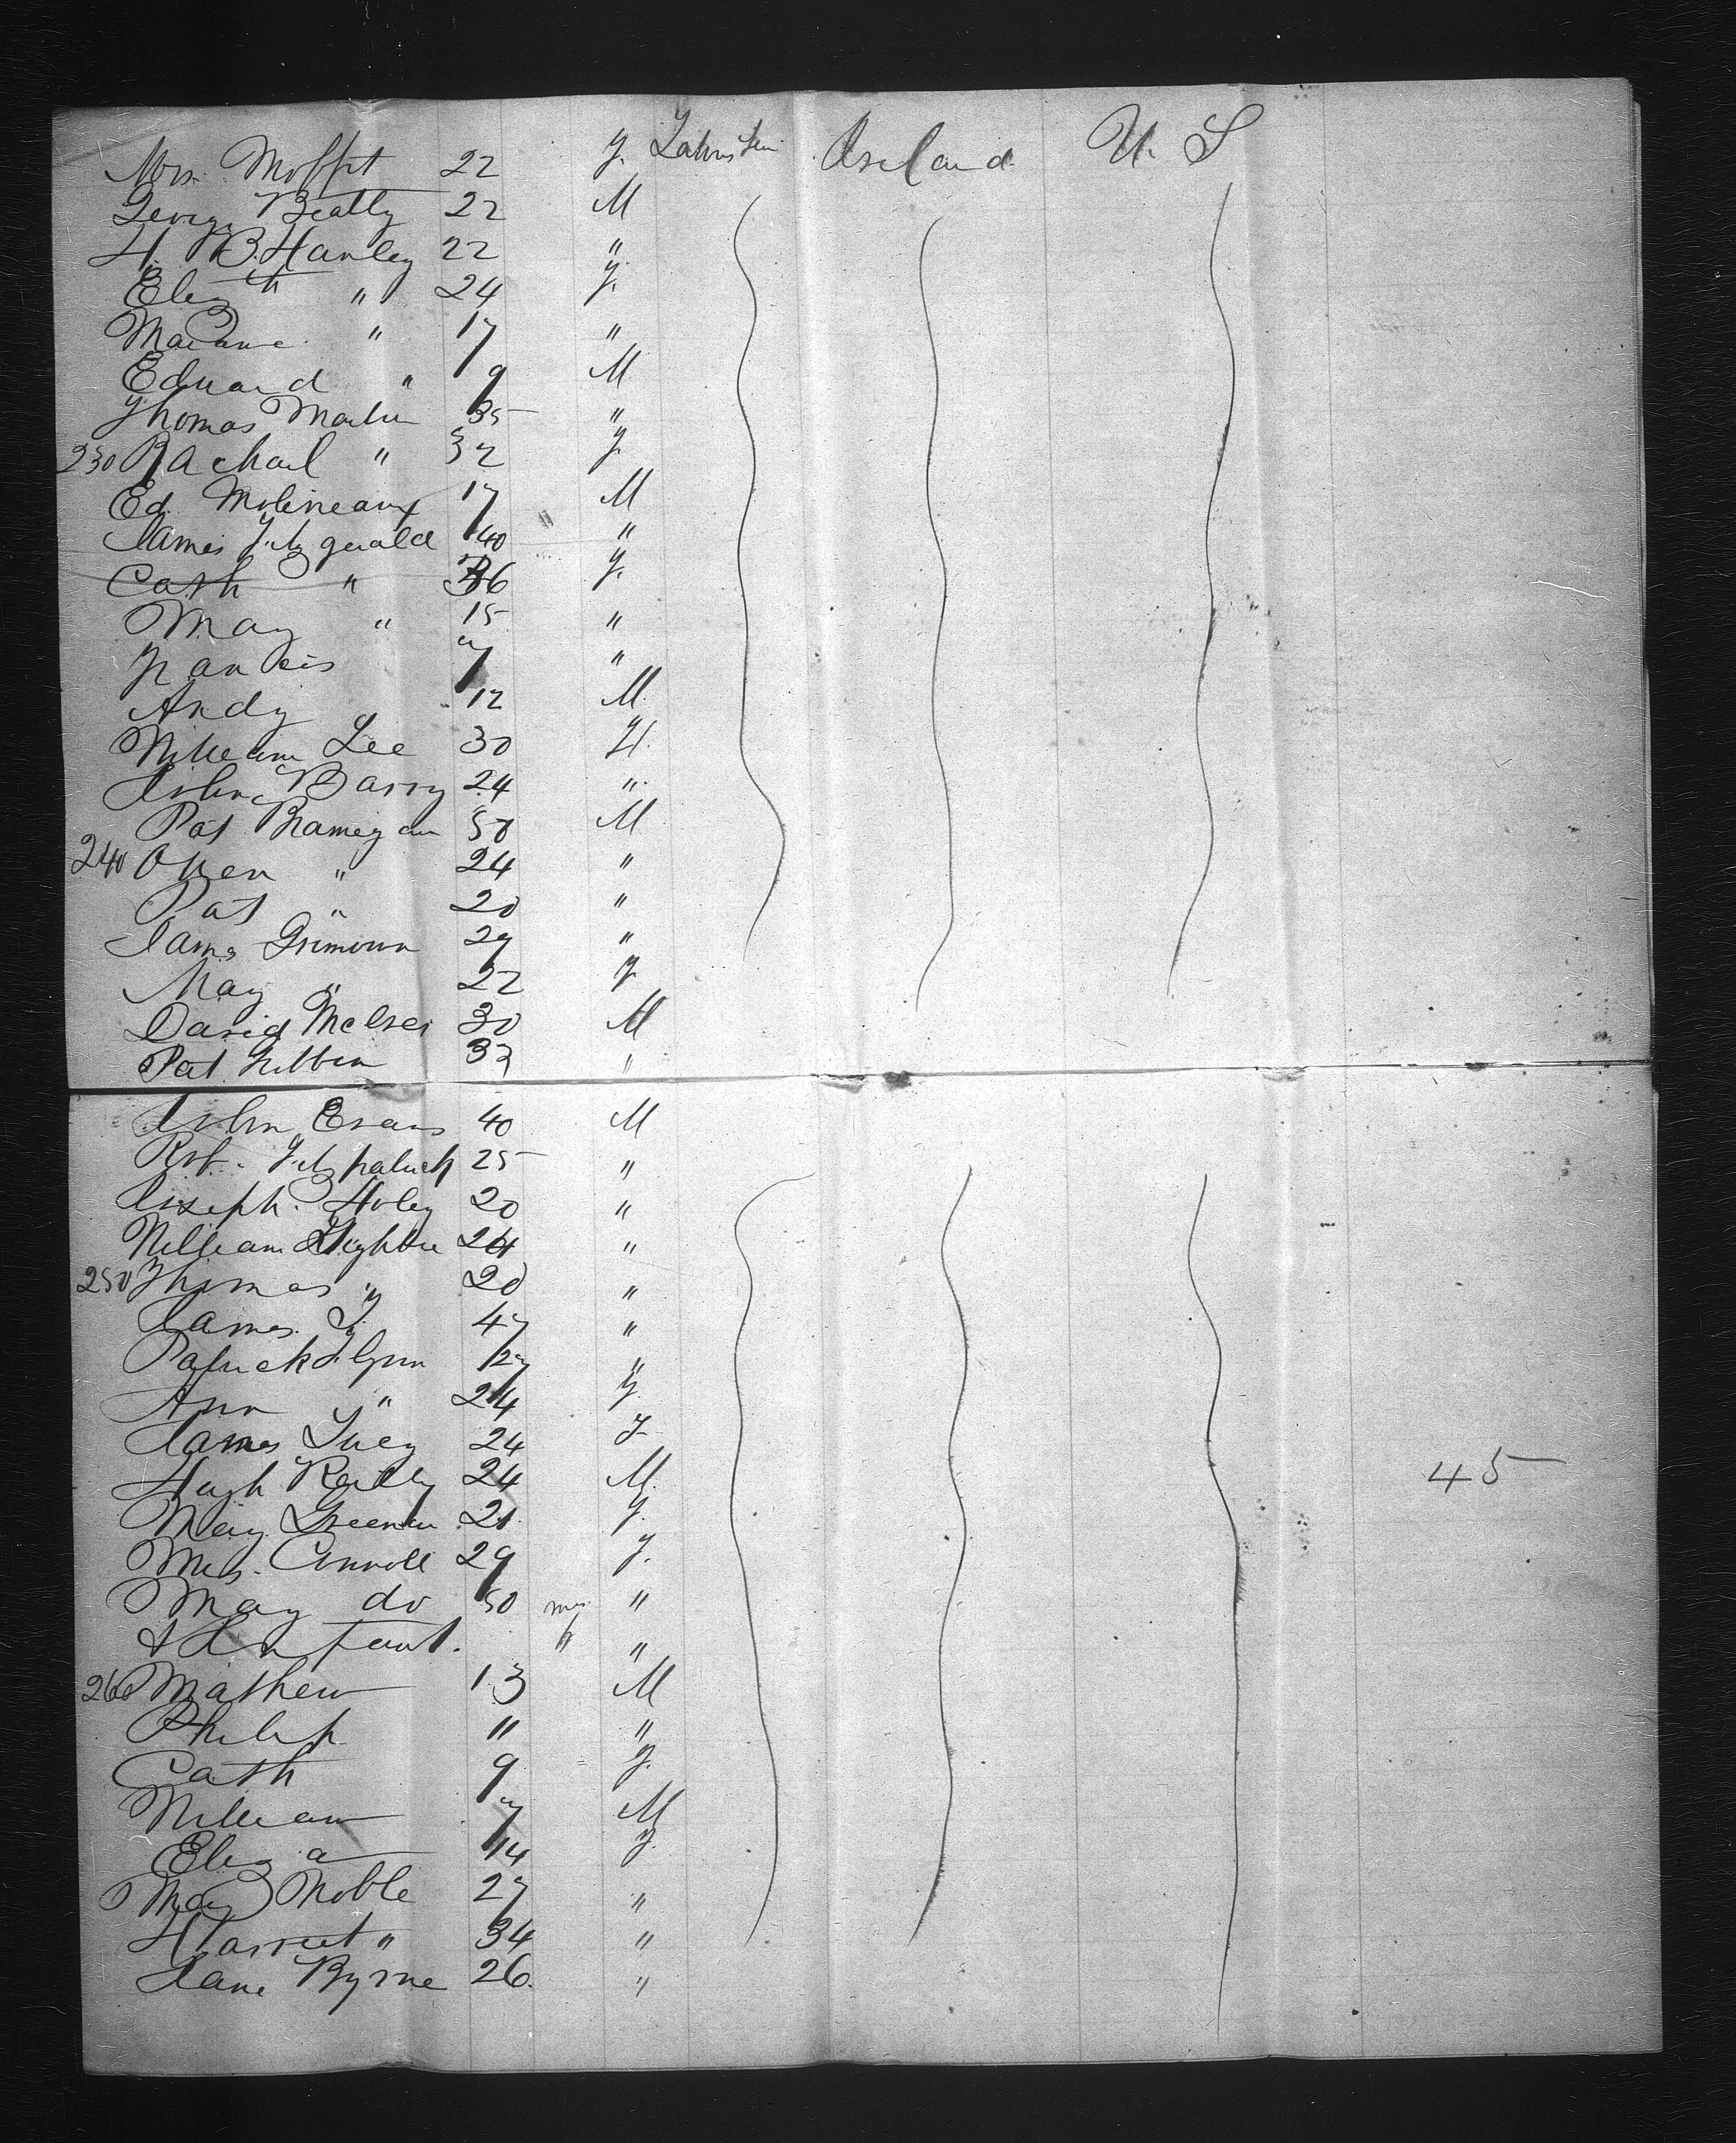 Mrs. Moffit 22 F. Ireland U. S
George Beatty 22 M
H. B. Hanley 22 "
Eliz th " 24 F.
" 17 "
Edward " 9 M
Thomas Martin 35 "
230 Rachael " 32 F
Ed. Molineaux 17 M
James Fitzgerald 40 "
Cath " 36 F.
Mary " 15 "
Francis 7 "
Andy 12 M
William Lee 30
John Barry 24 "
Pat 50 M
240 Owen " 24 "
Pat " 20 "
James 27 "
Mary " 22 F
David 30 M
Pat 32 "
John Evans 40 M
Rob. Fitzpatrick 25 "
Joseph. 20 "
William 24 "
250 Thomas " 20 "
James. 47 "
Patrick Flynn 27 "
Ann " 24 F.
James 24 F
Hugh Reilly 24 M
Mary 21 F.
Mrs. 29 F.
Mary do 50 mos. "
& Infant. "
260 Mathew 13 M
Philip 11 "
Cath 9 F.
William 7 M
Eliza 14 F.
Mary Noble 27 "
Harriet " 34 "
Jane Byrne 26. "
45